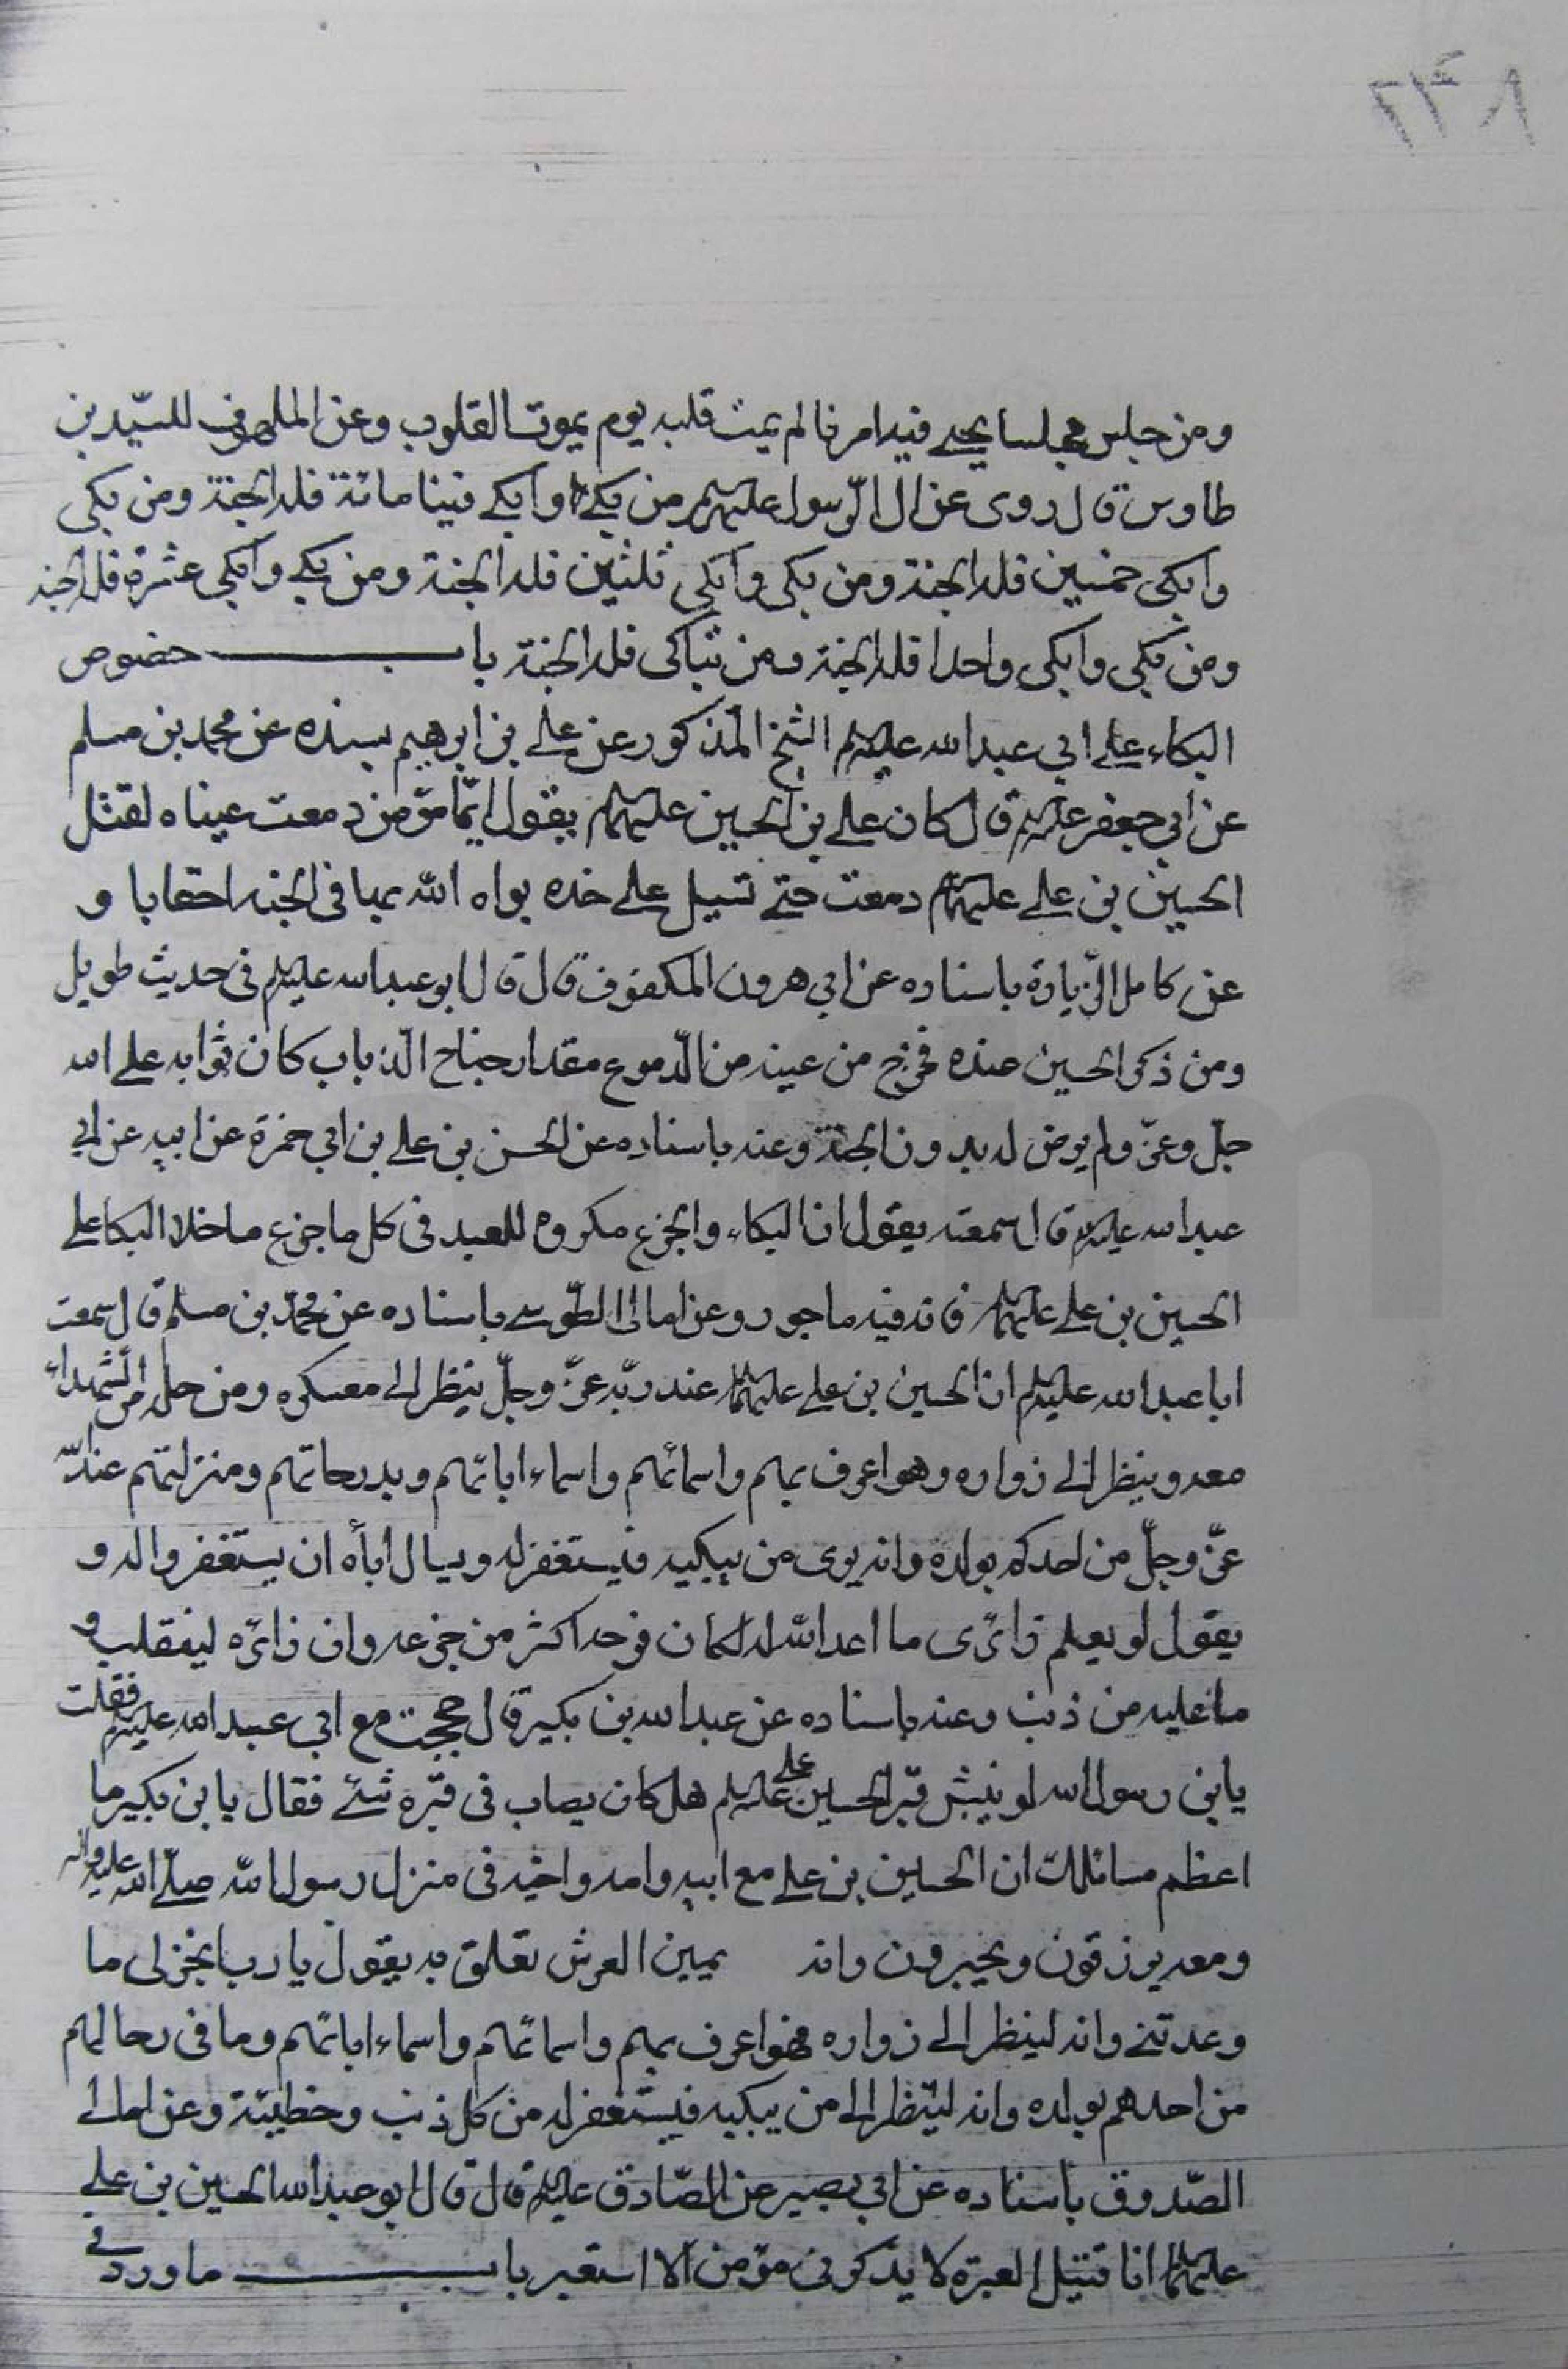 ٢٣٨
ومن جلس مجلسا يحيى فيه امرنا لم يمت قلبه يوم يموت القلوب وعن الملهوف للسيّد بن
طاوس قال روى عن ال الرّسول عليهم من بكى وابكى فينا مائة فله الجنة ومن بكى
وابكى خمسين فله الجنة ومن بكى وابكى ثلثين فله الجنة ومن بكى وابكى عشرة فله الجنه
ومن بكى وابكى واحدا فله الجنة ومن تباكى فله الجنة باب خصوص
البكاء على ابي عبدالله عليه الشيخ المذكور عن علي بن ابرهيم بسنده عن محمد بن مسلم
عن ابي جعفر عليه قال كان علي بن الحسين عليهما يقول ايّما مؤمن دمعت عيناه لقتل
الحسين بن علي عليهما دمعت حتى تسيل على خده بواه الله بها في الجنه احقابا و
عن كامل الزّيارة باسناده عن ابي هرون المكفوف قال قال ابو عبدالله عليه في حديث طويل
ومن ذكر الحسين عنده فخرج من عينه من الدّموع مقدار جناح الذباب كان ثوابه على الله
جلّ وعزّ ولم يرض له بدون الجنّة وعنه باسناده عن الحسن بن علي بن ابي حمزة عن ابيه عن ابي
عبدالله عليه قال سمعته يقول ان البكاء والجزع مكروه للعبد في كل ما جزع ما خلا البكا على
الحسين بن علي عليهما فانه فيه ماجور وعن امالى الطّوسي باسناده عن محمّد بن مسلم قال سمعت
ابا عبدالله عليه ان الحسين بن علي عليهما عند ربّه عزّ وجلّ ينظر الى معسكره ومن حله من الشهداء
معه وينظر الى زواره وهو اعرف بهم واسمائهم واسماء ابائهم وبدرجاتهم ومنزلتهم عند الله
عزّ وجلّ من احدكم بولده وانه يرى من يبكيه فيستغفر له ويسال اباه ان يستغفر واله و
يقول لو يعلم زائرى ما اعد الله له لكان فرحه اكثر من جزعه وان زائره ليفقلب و
ما عليه من ذنب وعنه باسناده عن عبدالله بن بكير قال حججت مع ابي عبدالله عليه فقلت
يابن رسول الله لو نبش قبر الحسين علي عليه هل كان يصاب في قبره شئ فقال يا بن بكير ما
اعظم مسائلك ان الحسين بن علي مع ابيه وامه واخيه في منزل رسول الله صلّى الله عليه واله
ومعه يرزقون ويحبرون وانه يمين العرش تعلق به يقول يا رب انجز لى ما
وعدتني وانه لينظر الى زواره فهو اعرف بهم واسمائهم واسماء ابائهم وما في رحالهم
من احدهم بولده وانه لينظر الى من يبكيه فيستغفر له من كل ذنب وخطيئة وعن امالي
الصّدوق باسناده عن ابي بصير عن الصّادق عليه قال قال ابو عبدالله الحسين بن علي
عليهما انا قتيل العبرة لا يذكرني مؤمن الا استعبر باب ما ورد في